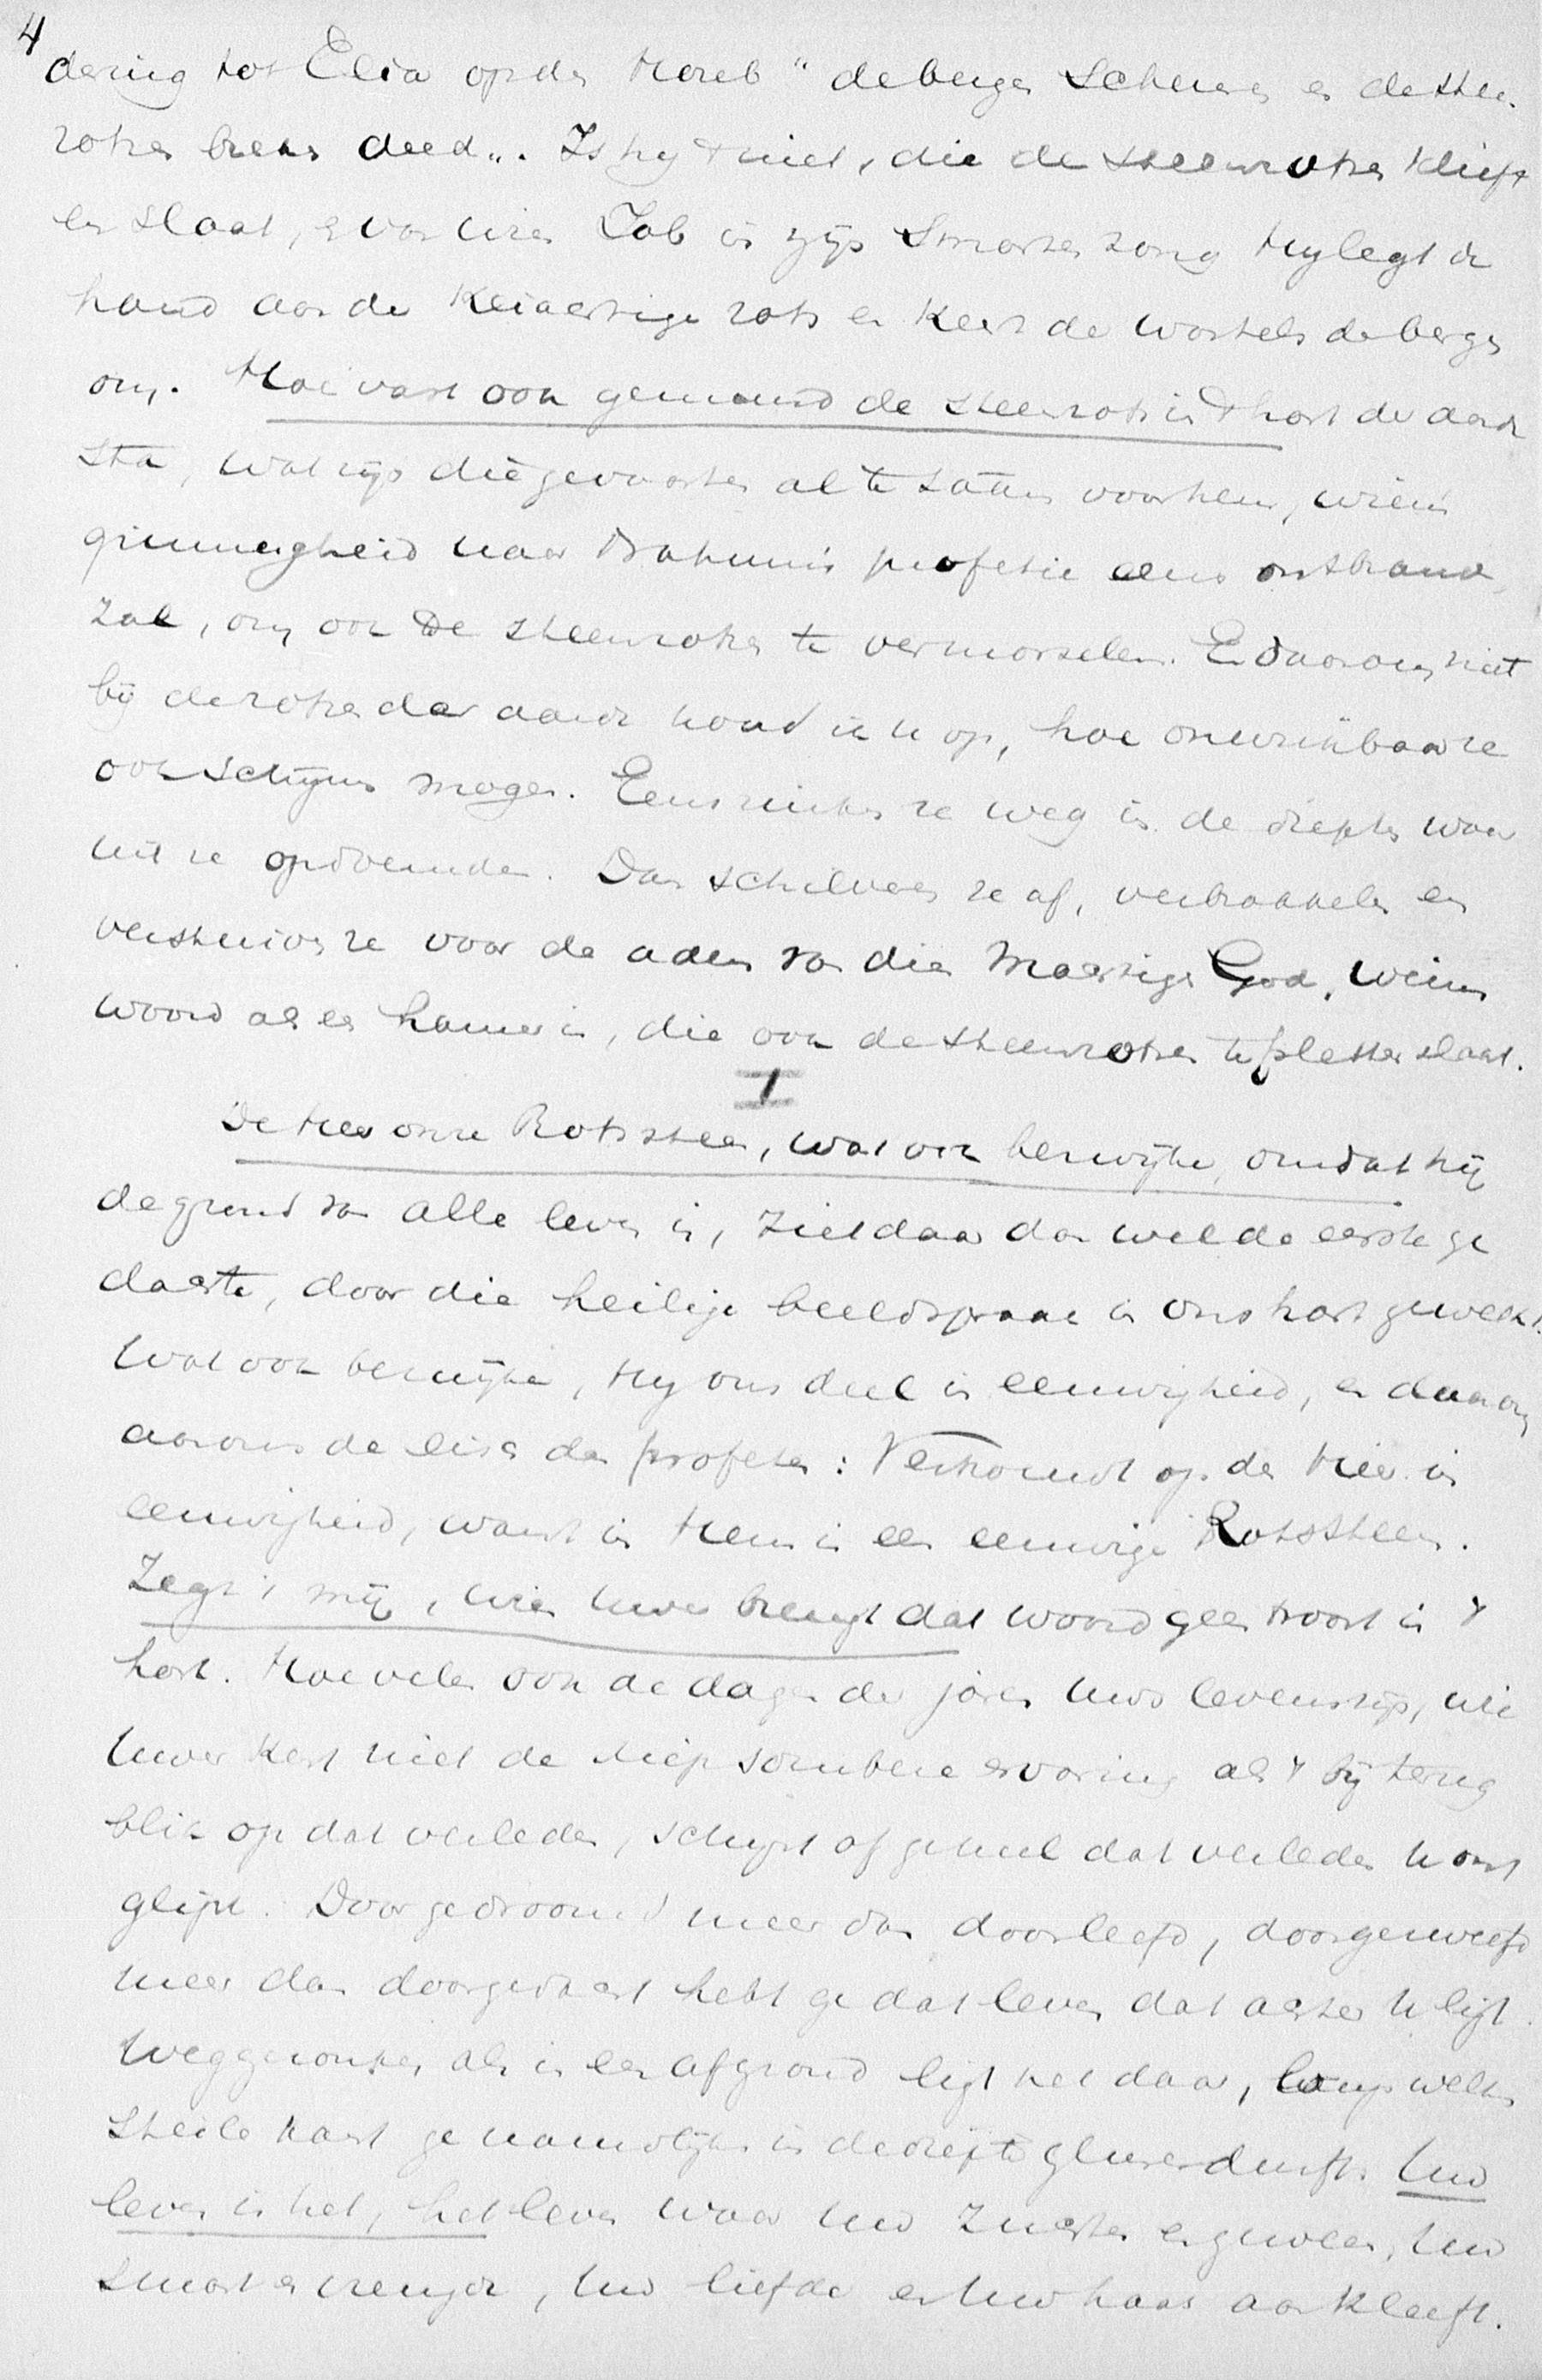 4
dering tot Elia op den Horeb "de bergen scheuren en de steen
rotsen breken deed". Is hij 't niet, die de steenrotsen klieft
en slaat, en van wien Job in zijn smarten zong Hij legt de
hand aan de keiachtige rots en keert de wortels der bergen
om. Hoe vast ook gemuurd de steenrots in 't hart der aarde
sta, wat zijn die gevaarten al te zamen voor hem, wiens
grimmigheid naar Nahum's profetie eens ontbranden
zal, om ook de steenrotsen te vermorselen. En daarom niet
bij de rotsen der aarde houd ik u op, hoe onwrikbaar ze
ook schijnen mogen. Eens zinken ze weg in de diepten waar
uit ze opdoemden. Dan schilveren ze af, verbrokkelen en
verstuiven ze voor de adem van dien Machtigen God, wiens
woord als een hamer is, die ook de steenrotsen te pletter slaat.
I
De Heer onze Rotssteen, wat ook bezwijke, omdat hij
de grond van alle leven is, ziet daar dan wel de eerste ge
dachte, door die heilige beeldspraak in ons hart gewekt.
Wat ook bezwijke, Hij ons deel in eeuwigheid, en daarom
aan ons de eisch des profeten: Vertrouwt op den Heer in
eeuwigheid, want in Hem is een eeuwige Rotssteen.
Zegt 't mij, wien uwer brengt dat woord geen troost in 't
hart. Hoe velen ook de dagen der jaren uws levens zijn, wie
uwer kent niet de diep sombere ervaring als 't bij terug
blik op dat verleden, schijnt of geheel dat verleden u ont
glipt. Doorgedroomd meer dan doorleefd, doorgezweefd
meer dan doorgedacht hebt ge dat leven dat achter u ligt.
Weggezonken als in een afgrond ligt het daar, langs welks
steile kant ge nauwelijks in de diepte gluren durft. Uw
leven is het, het leven waar uw zuchten en juichen, uw
smart en vreugde, uw liefde en uw haat aan kleeft.